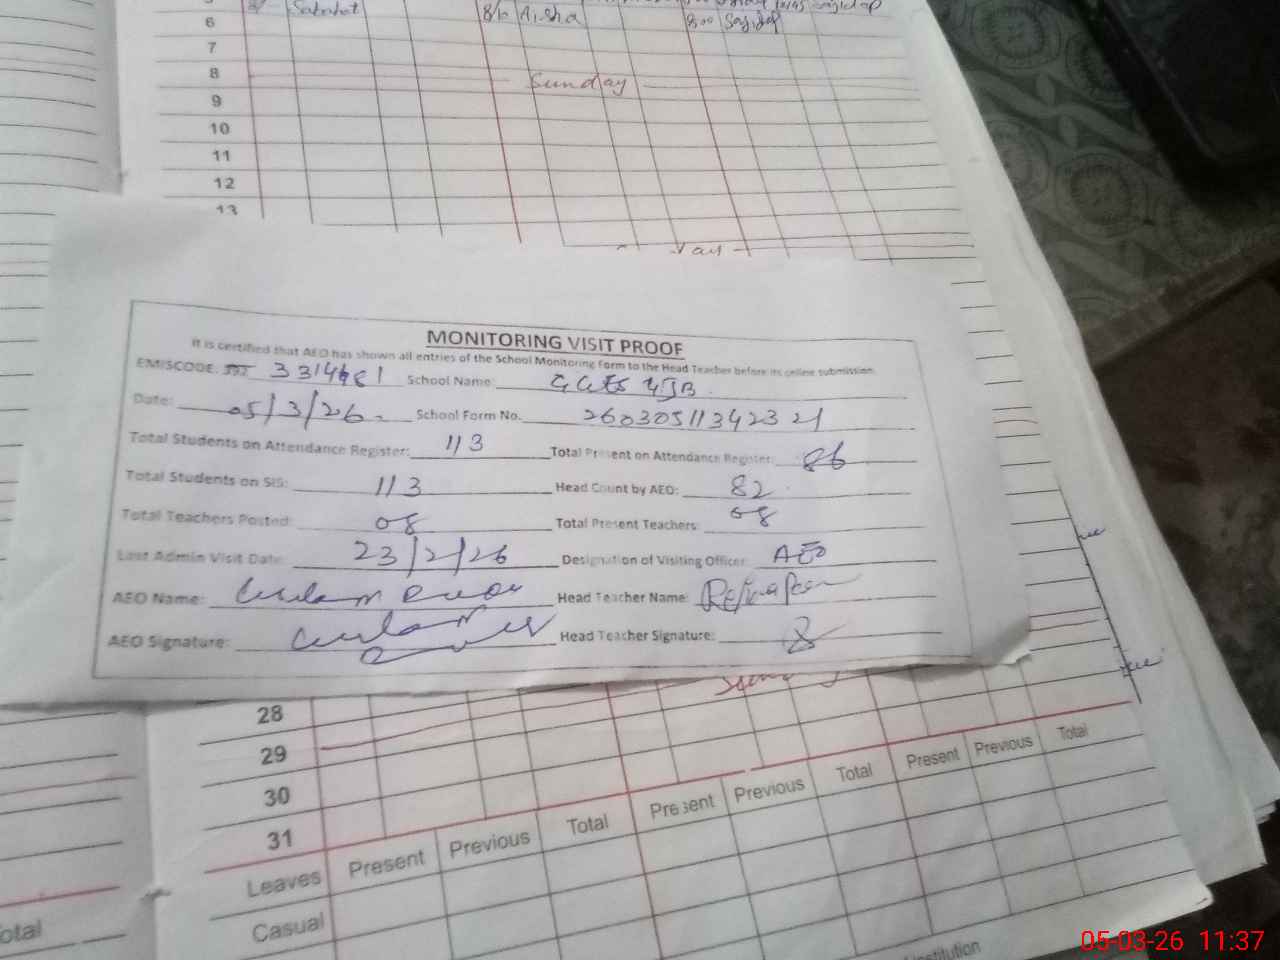 6 Sabahat 8/10 Aisha 8:00 Sajidap
7
8 Sunday
9
10
11
12
13
MONITORING VISIT PROOF
It is certified that AEO has shown all entries of the School Monitoring Form to the Head Teacher before its online submission
EMISCODE: School Name:
Date: 05/3/26 School Form No. 26030511342321
Total Students on Attendance Register: 113 Total Present on Attendance Register: 86
Total Students on SIS: 113 Head Count by AEO: 82
Total Teachers Posted: 08 Total Present Teachers: 08
Last Admin Visit Date: 23/2/26 Designation of Visiting Officer: AEO
AEO Name: Head Teacher Name:
AEO Signature: Head Teacher Signature:
28
29
30
31
Leaves Present Previous Total Present Previous Total Present Previous Total
Casual
otal
nstitution
05-03-26 11:37